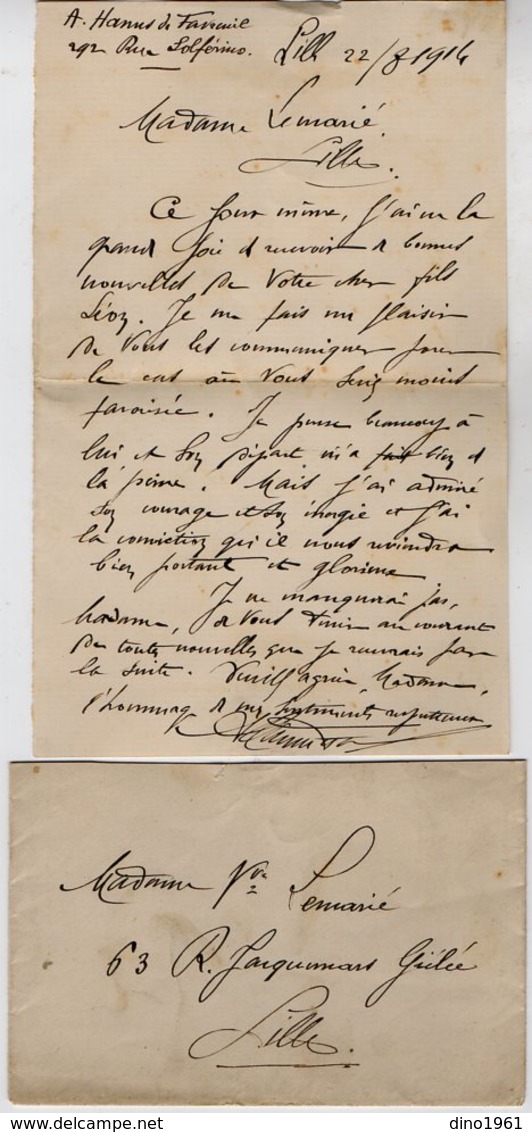 A. Hanus de
292 Rue Solférino.
Lille 22/8 1914
Madame Lemarié
Lille.
Ce jour même, j'ai eu la
grand joie de recevoir de bonnes
nouvelles de Votre cher fils
Léon. Je me fais un plaisir
de Vous les communiquer pour
le cas où Vous seriez moins
favorisée. Je pense beaucoup à
lui et son départ m'a fait bien de
la peine. Mais j'ai admiré
son courage et son énergie et j'ai
la conviction qu'il nous reviendra
bien portant et glorieux
Je ne manquerai pas,
Madame, de Vous tenir au courant
de toutes nouvelles que je recevrais par
la suite. Veuillez agréer, Madame,
l'hommage de mes sentiments respectueux
Madame Vve Lemarié
63 R. Jacquemars Giélée
Lille.
dino1961